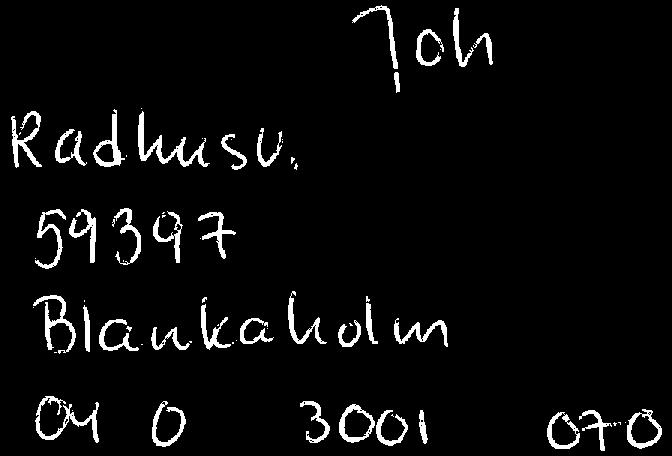 Joh
Radhusv.
59397
Blankaholm
04 0 3001 070